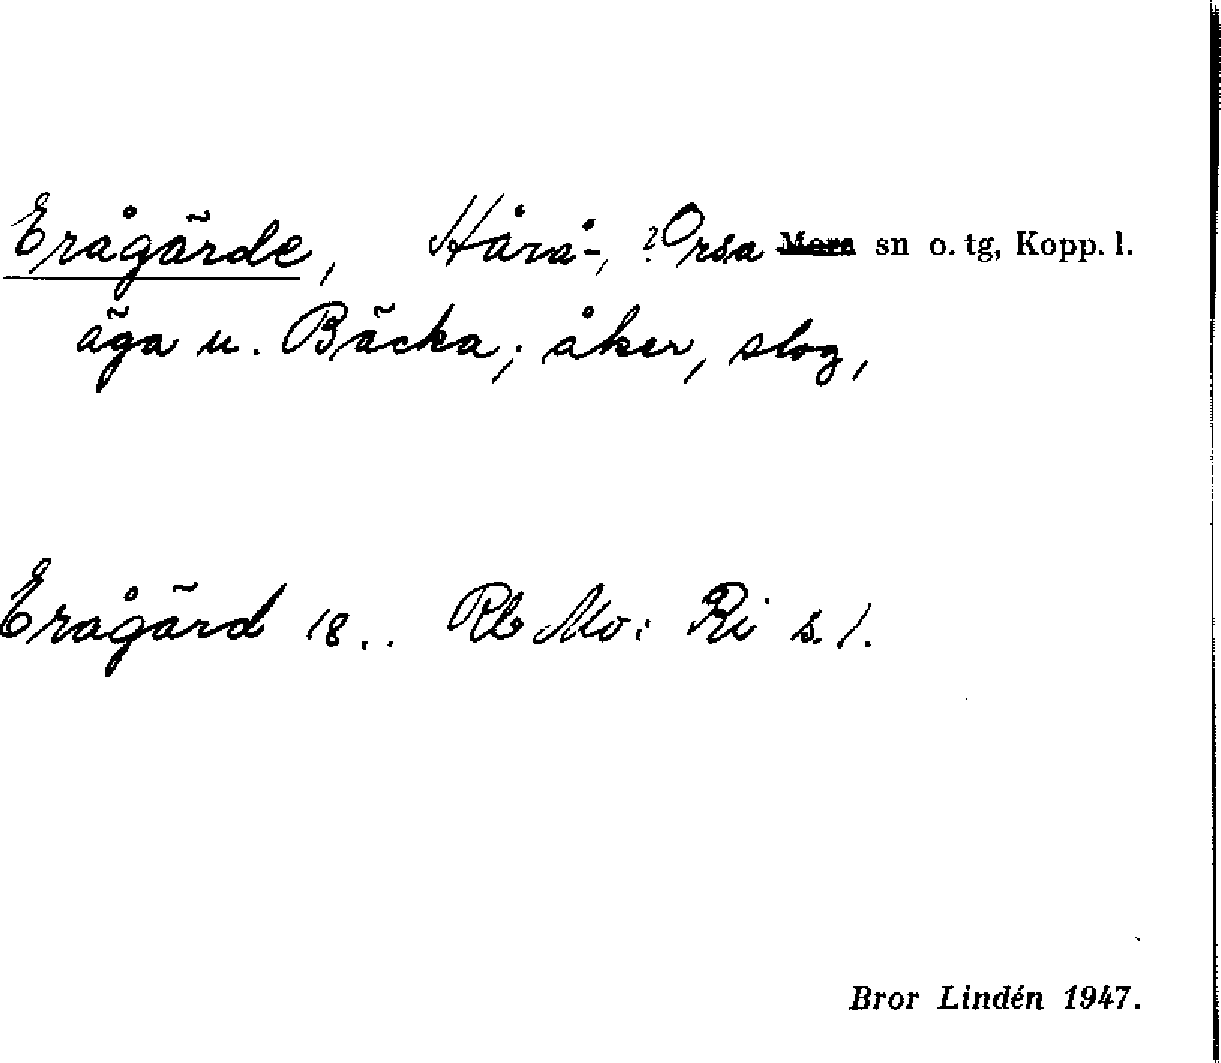 Erågärde, Håvå-, ?Orsa Mora sn o. tg, Kopp. l.
äga u. Bäcka; åker, slog,
Erågärd 18.. Rb Mo: Ri s. 1.
Bror Lindén 1947.